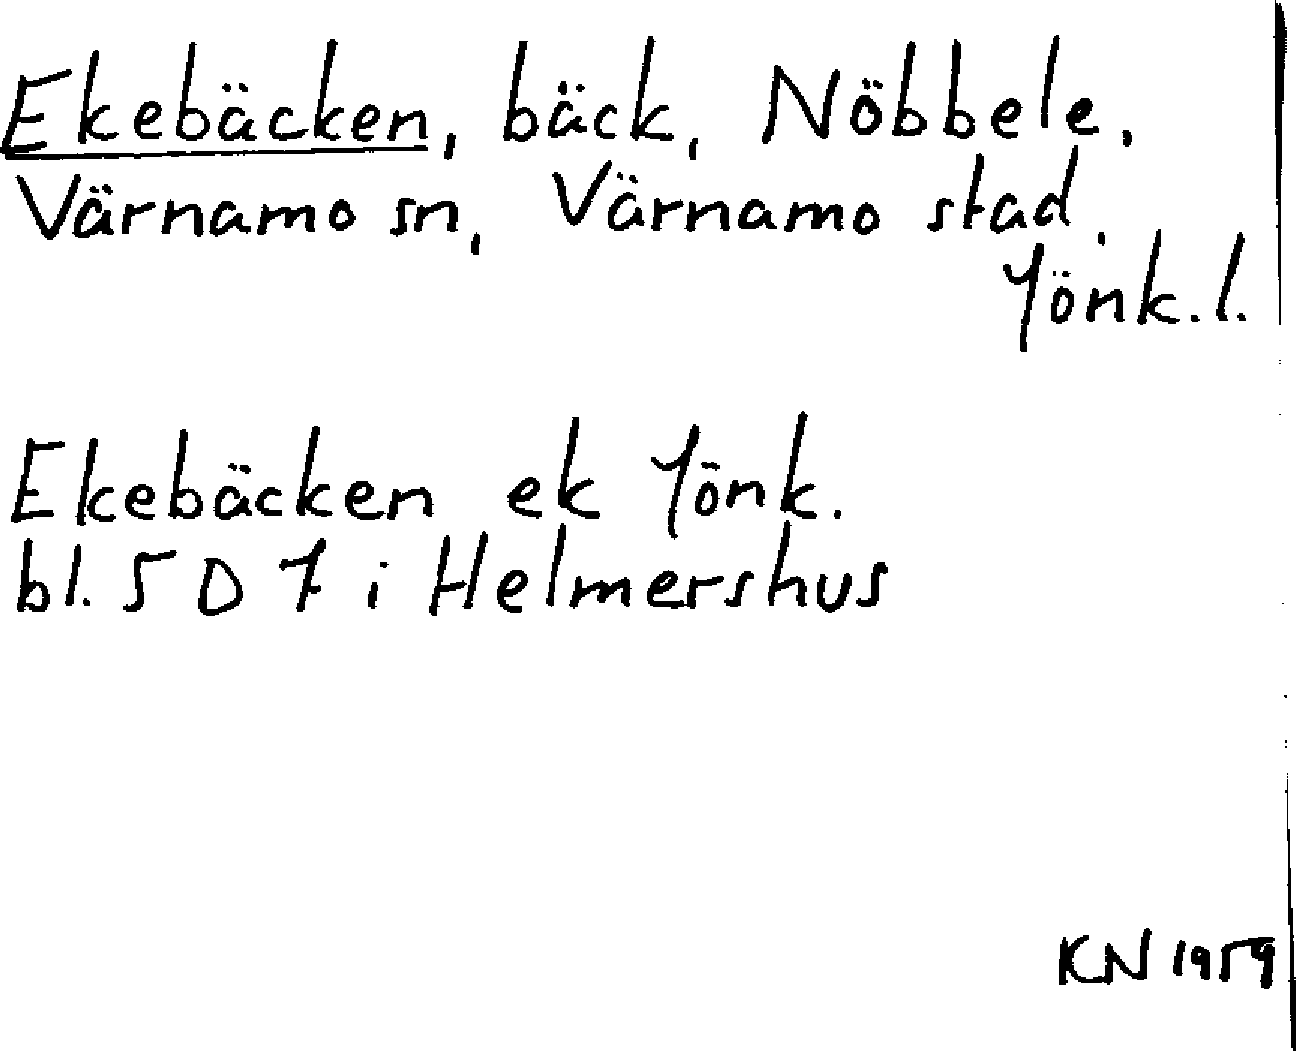 Ekebäcken, bäck, Nöbbele,
Värnamo sn, Värnamo stad,
Jönk.l.
Ekebäcken ek Jönk.
bl. 5 D 7 i Helmershus
KN 1959